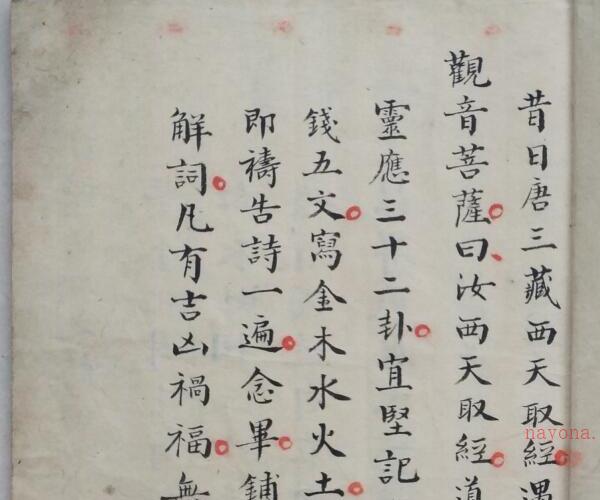 昔日唐三藏西天取經遇
觀音菩薩曰汝西天取經道
靈應三十二卦宜堅記
錢五文寫金木水火土
即禱告詩一遍念畢鋪
解詞凡有吉凶禍福無
nayona.